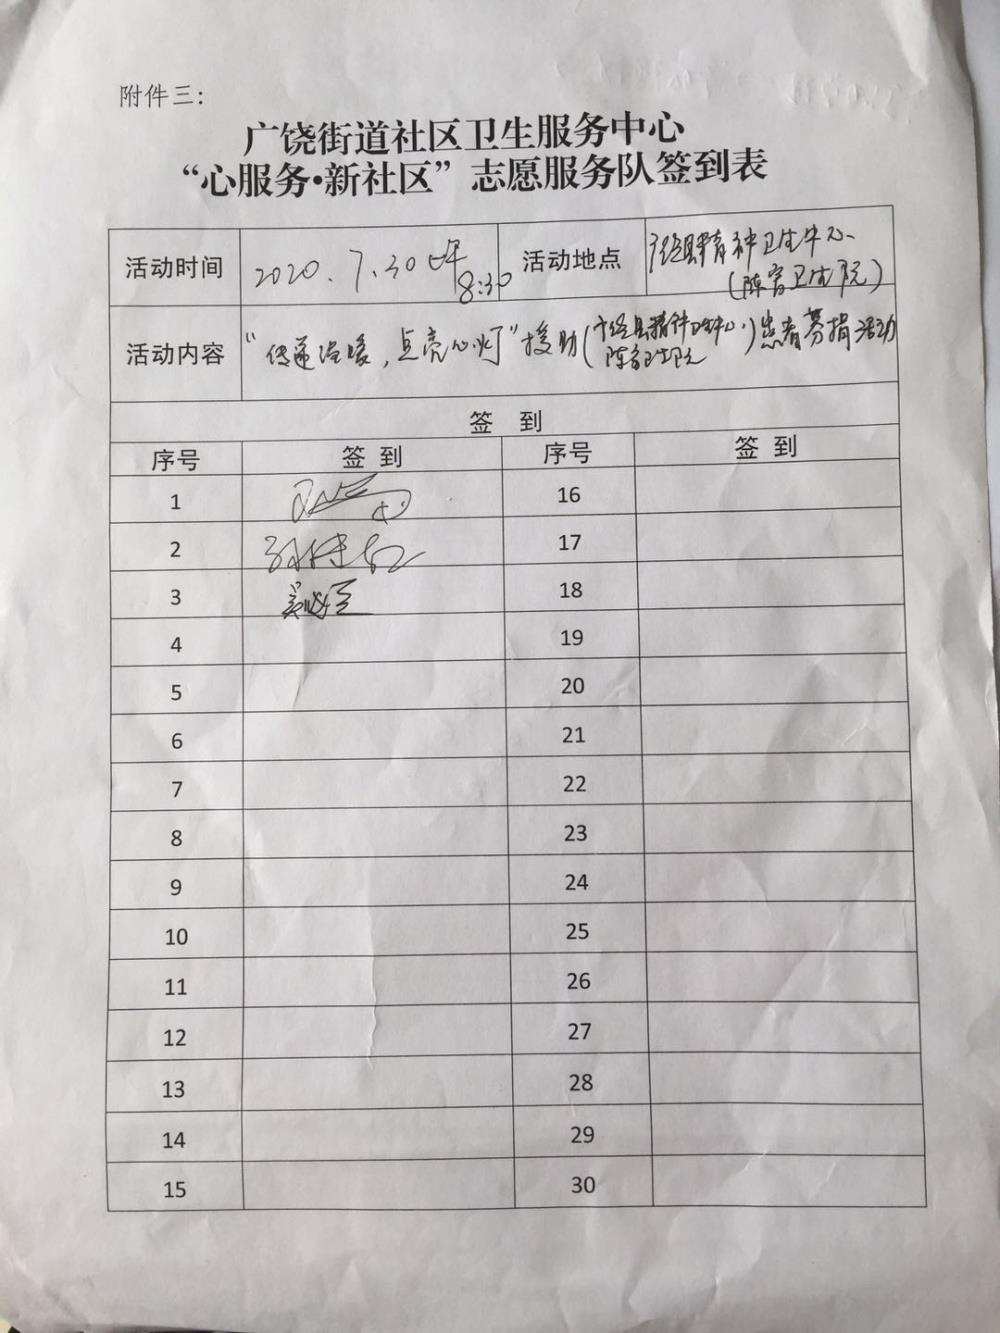 附件三:
广饶街道社区卫生服务中心
“心服务•新社区”志愿服务队签到表
活动时间 2020.7.30上午 8:30 活动地点 广饶县精神卫生中心
(陈官卫生院)
活动内容 “传递温暖,点亮心灯”援助(广饶县精神卫生中心、陈官卫生院)患者募捐活动
签 到
序号 签到 序号 签到
1 16
2 17
3 18
4 19
5 20
6 21
7 22
8 23
9 24
10 25
11 26
12 27
13 28
14 29
15 30